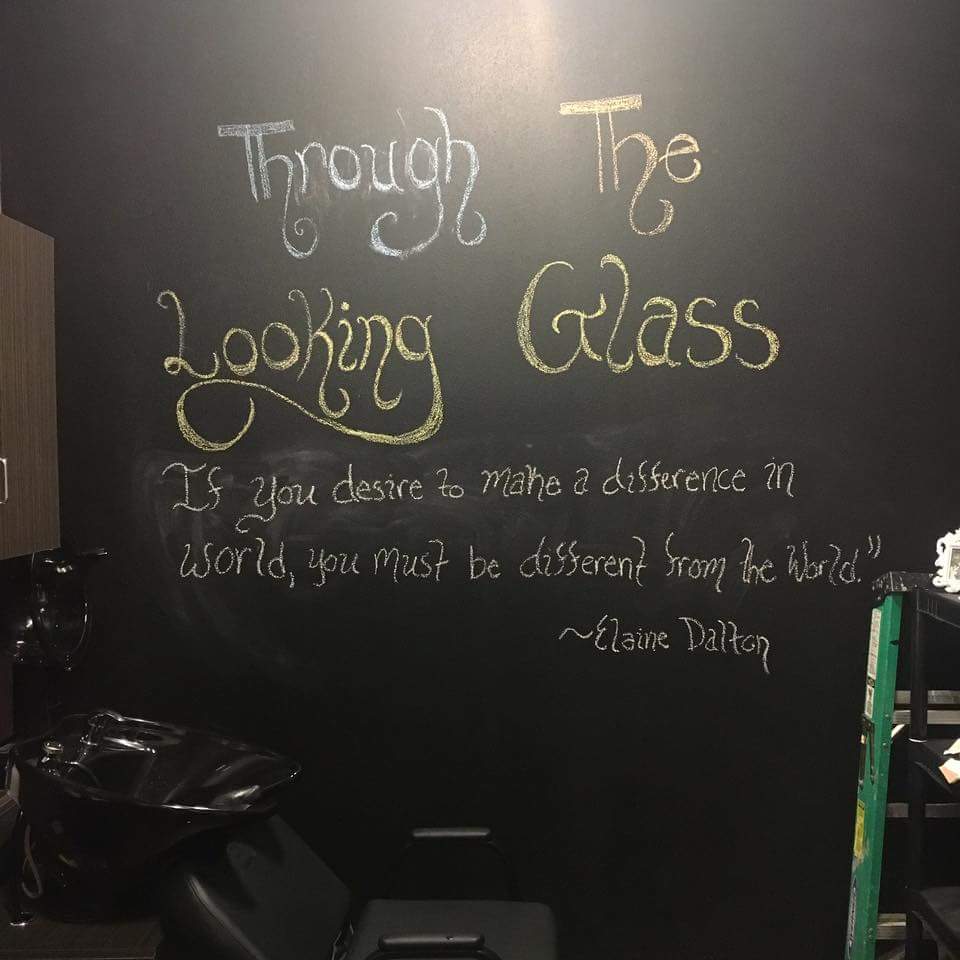 Through The
Looking Glass
If you desire to make a difference in
World, you must be different from the World."
~Elaine Dalton